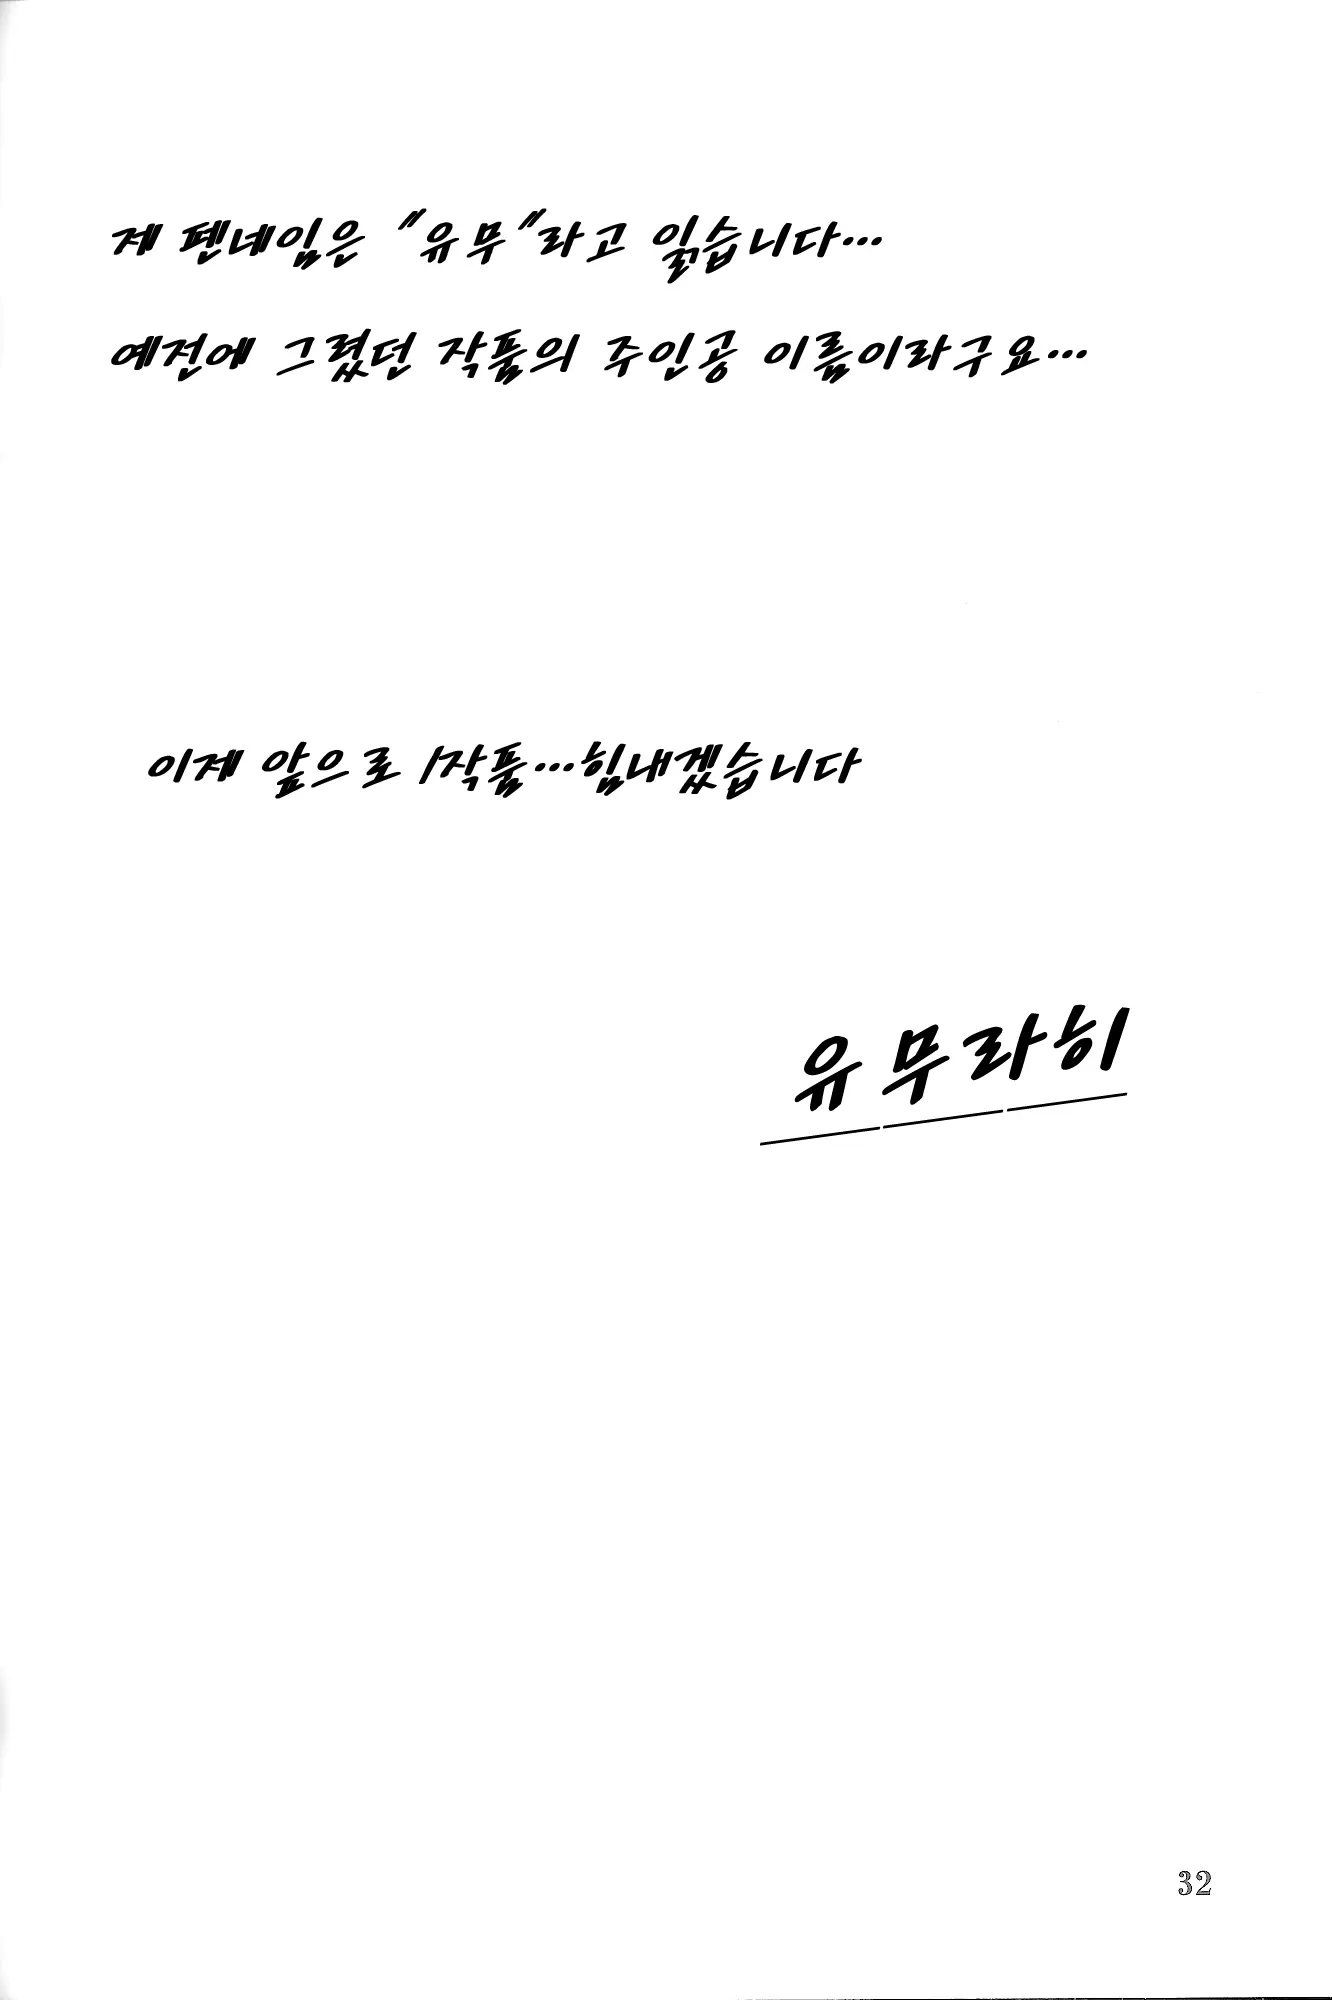 제 펜네임은 "유무"라고 읽습니다…
예전에 그렸던 작품의 주인공 이름이라구요…
이제 앞으로 1작품…힘내겠습니다
유무라히
32